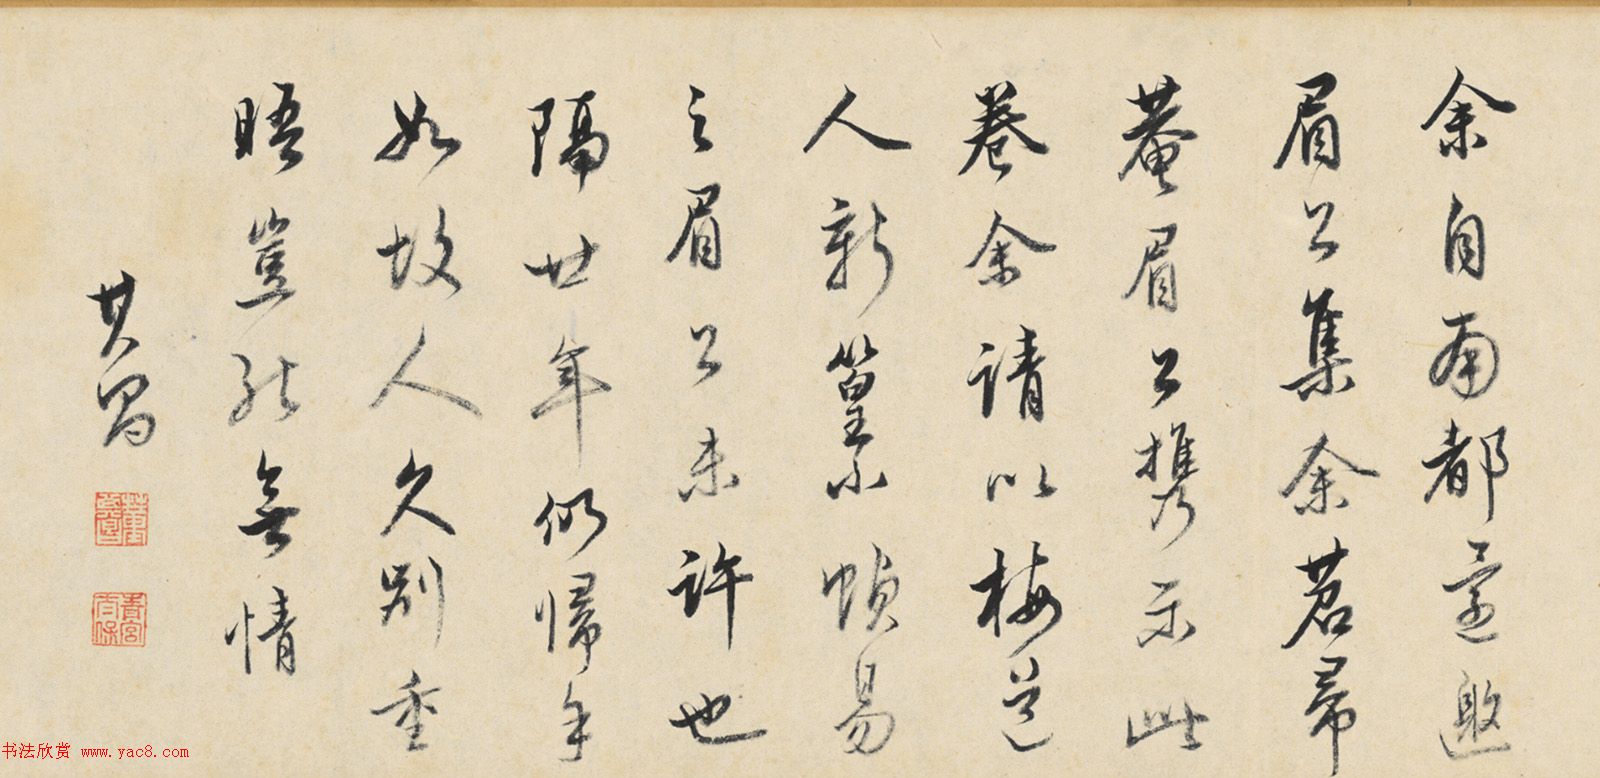 余自南都還邀
眉公集余苕帚
菴眉公携示此
卷余請以梅道
人新篁小幀易
之眉公未許也
隔廿年仍歸余手
如故人久別重
晤豈能無情
其昌
書法欣赏 www.yac8.com